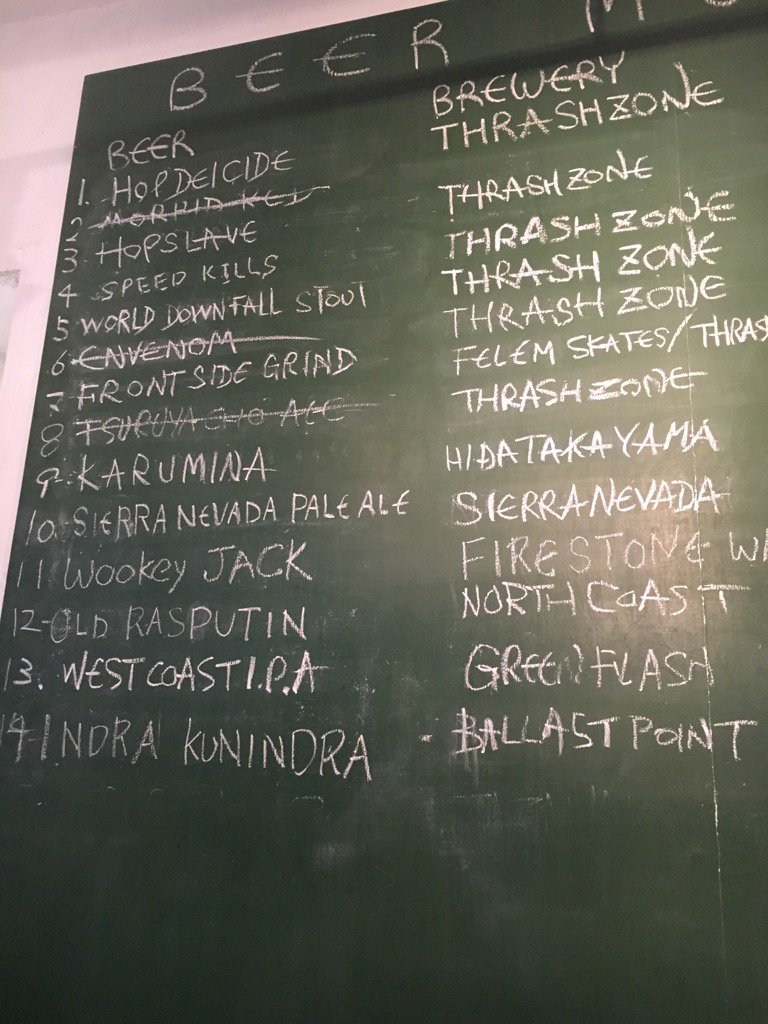 BEER M
BEER BREWERY
1. HOPDEICIDE THRASHZONE
2 MORBID
3 HOPSLAVE THRASHZONE
4 SPEED KILLS THRASH ZONE
5 WORLD DOWNFALL STOUT THRASH ZONE
6 ENVENOM THRASH ZONE
7 FRONTSIDE GRIND FELEM SKATES/THRAS
8 TSURUYACHO ALE THRASHZONE
9. KARUMINA HIDATAKAYAMA
10. SIERRA NEVADA PALE ALE SIERRA NEVADA
11 WOOKEY JACK FIRESTONE WA
12-OLD RASPUTIN NORTH COAST
13. WEST COAST I.P.A GREEN FLASH
14 INDRA KUNINDRA - BALLAST POINT